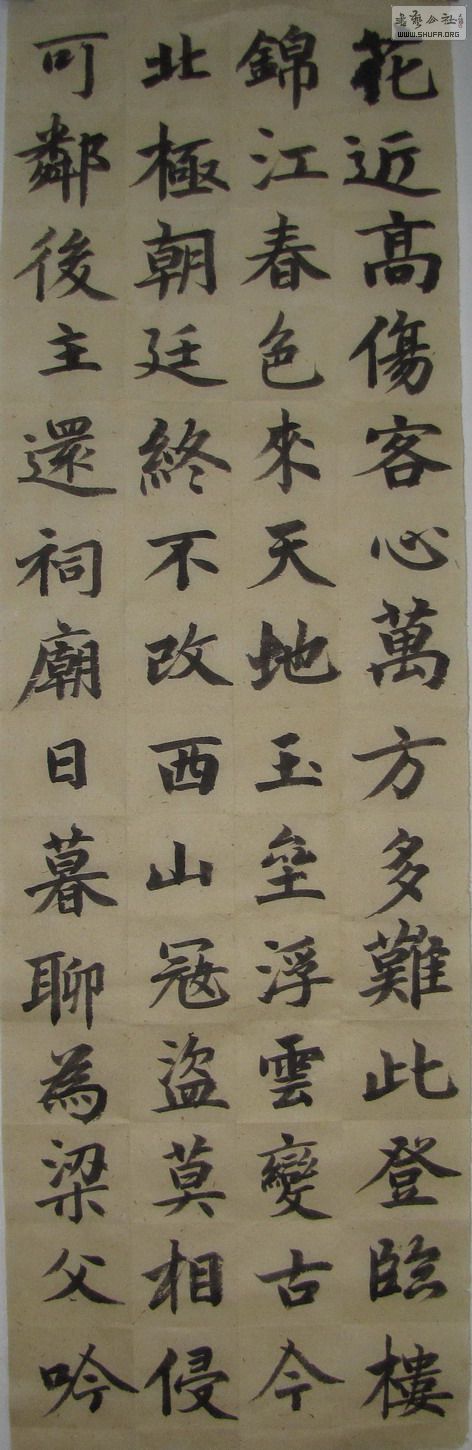 花近高傷客心萬方多難此登臨樓
錦江春色來天地玉壘浮雲變古今
北極朝廷終不改西山寇盜莫相侵
可鄰後主還祠廟日暮聊為梁父吟
WWW.SHUFA.ORG